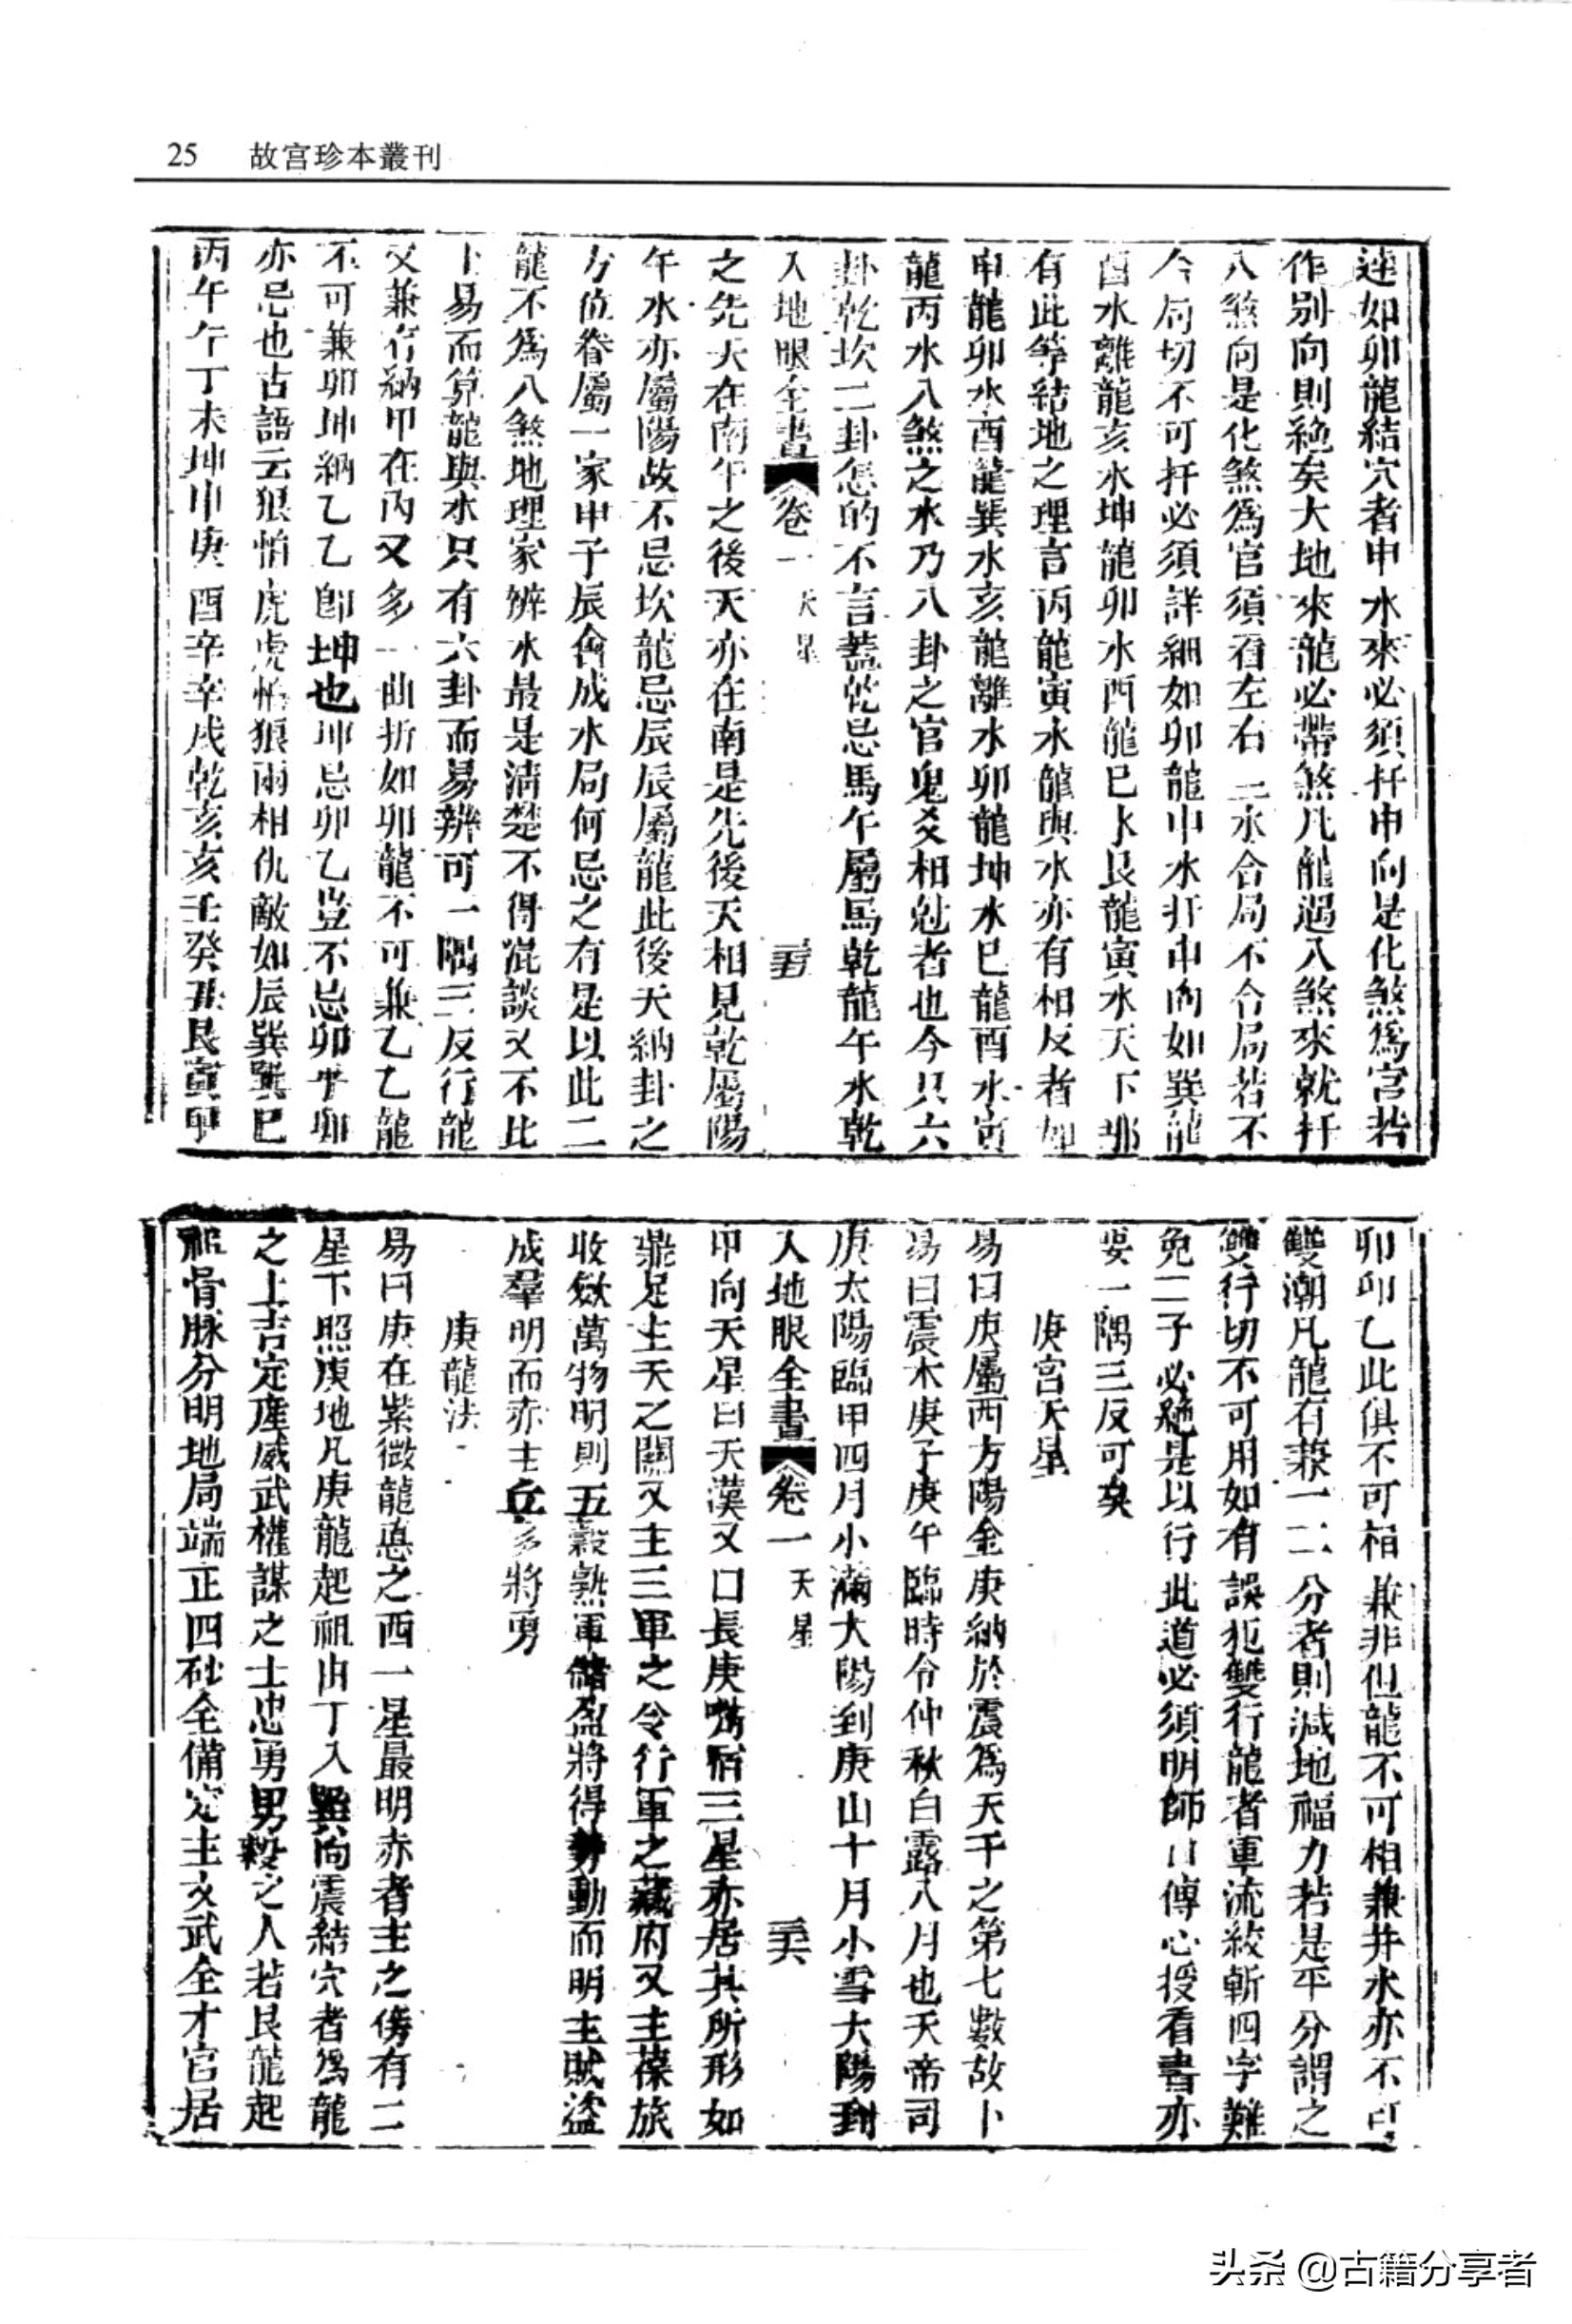 25 故宫珍本叢刊
達如卯龍結穴者申水來必須扦申向是化煞爲官若
作别向則絶矣大地來龍必帶煞凡龍遇八煞來就扦
八煞向是化煞爲官須看左右二水合局不合局若不
合局切不可扦必須詳細如卯龍申水扦申向如巽龍
酉水離龍亥水坤龍卯水酉龍巳水艮龍寅水天下那
有此等結地之理言丙龍寅水龍與水亦有相反者如
申龍卯水酉龍巽水亥龍離水卯龍坤水巳龍酉水寅
龍丙水八煞之水乃八卦之官鬼爻相尅者也今只六
卦乾坎二卦怎的不言蓋乾忌馬午屬馬乾龍午水乾
人地眼全書 卷一 天星 三五
之先天在南午之後天亦在南是先後天相見乾屬陽
午水亦屬陽故不忌坎龍忌辰辰屬龍此後天納卦之
方位眷屬一家申子辰會成水局何忌之有是以此二
龍不爲八煞地理家辨水最是清楚不得混談又不比
卜易而算龍與水只有六卦而易辨可一隅三反行龍
又兼有納甲在內又多一曲折如卯龍不可兼乙乙龍
不可兼卯坤納乙乙卽坤也坤忌卯乙豈不忌卯乎卯
亦忌也古語云狼怕虎虎怕狼兩相仇敵如辰巽巽巳
丙午午丁未坤申庚酉辛辛戌乾亥亥壬癸丑艮寅甲
卯卯乙此俱不可相兼非但龍不可相兼并水亦不可
雙潮凡龍有兼一二分者則減地福力若是平分謂之
雙行切不可用如有誤犯雙行龍者軍流絞斬四字難
免二子必絶是以行此道必須明師口傳心授看書亦
要一隅三反可矣
庚宮天星
易曰庚屬西方陽金庚納於震爲天干之第七數故卜
易曰震木庚子庚午臨時令仲秋白露八月也天帝司
庚太陽臨甲四月小滿大陽到庚山十月小雪大陽到
人地眼全書 卷一 天星 三六
甲向天星曰天漢又口長庚觜宿三星亦居其所形如
鼎足主天之關又主三軍之令行軍之藏府又主葆旅
收斂萬物明則五穀熟軍儲盈將得勢動而明主賊盜
成羣明而赤主兵多將勇
庚龍法
易曰庚在紫微龍悳之西一星最明赤者主之傍有二
星下照庚地凡庚龍起祖由丁入巽向震結穴者爲龍
之上吉定產威武權謀之士忠勇男毅之人若艮龍起
祖骨脉分明地局端正四砂全備定主文武全才官居
头条 @古籍分享者